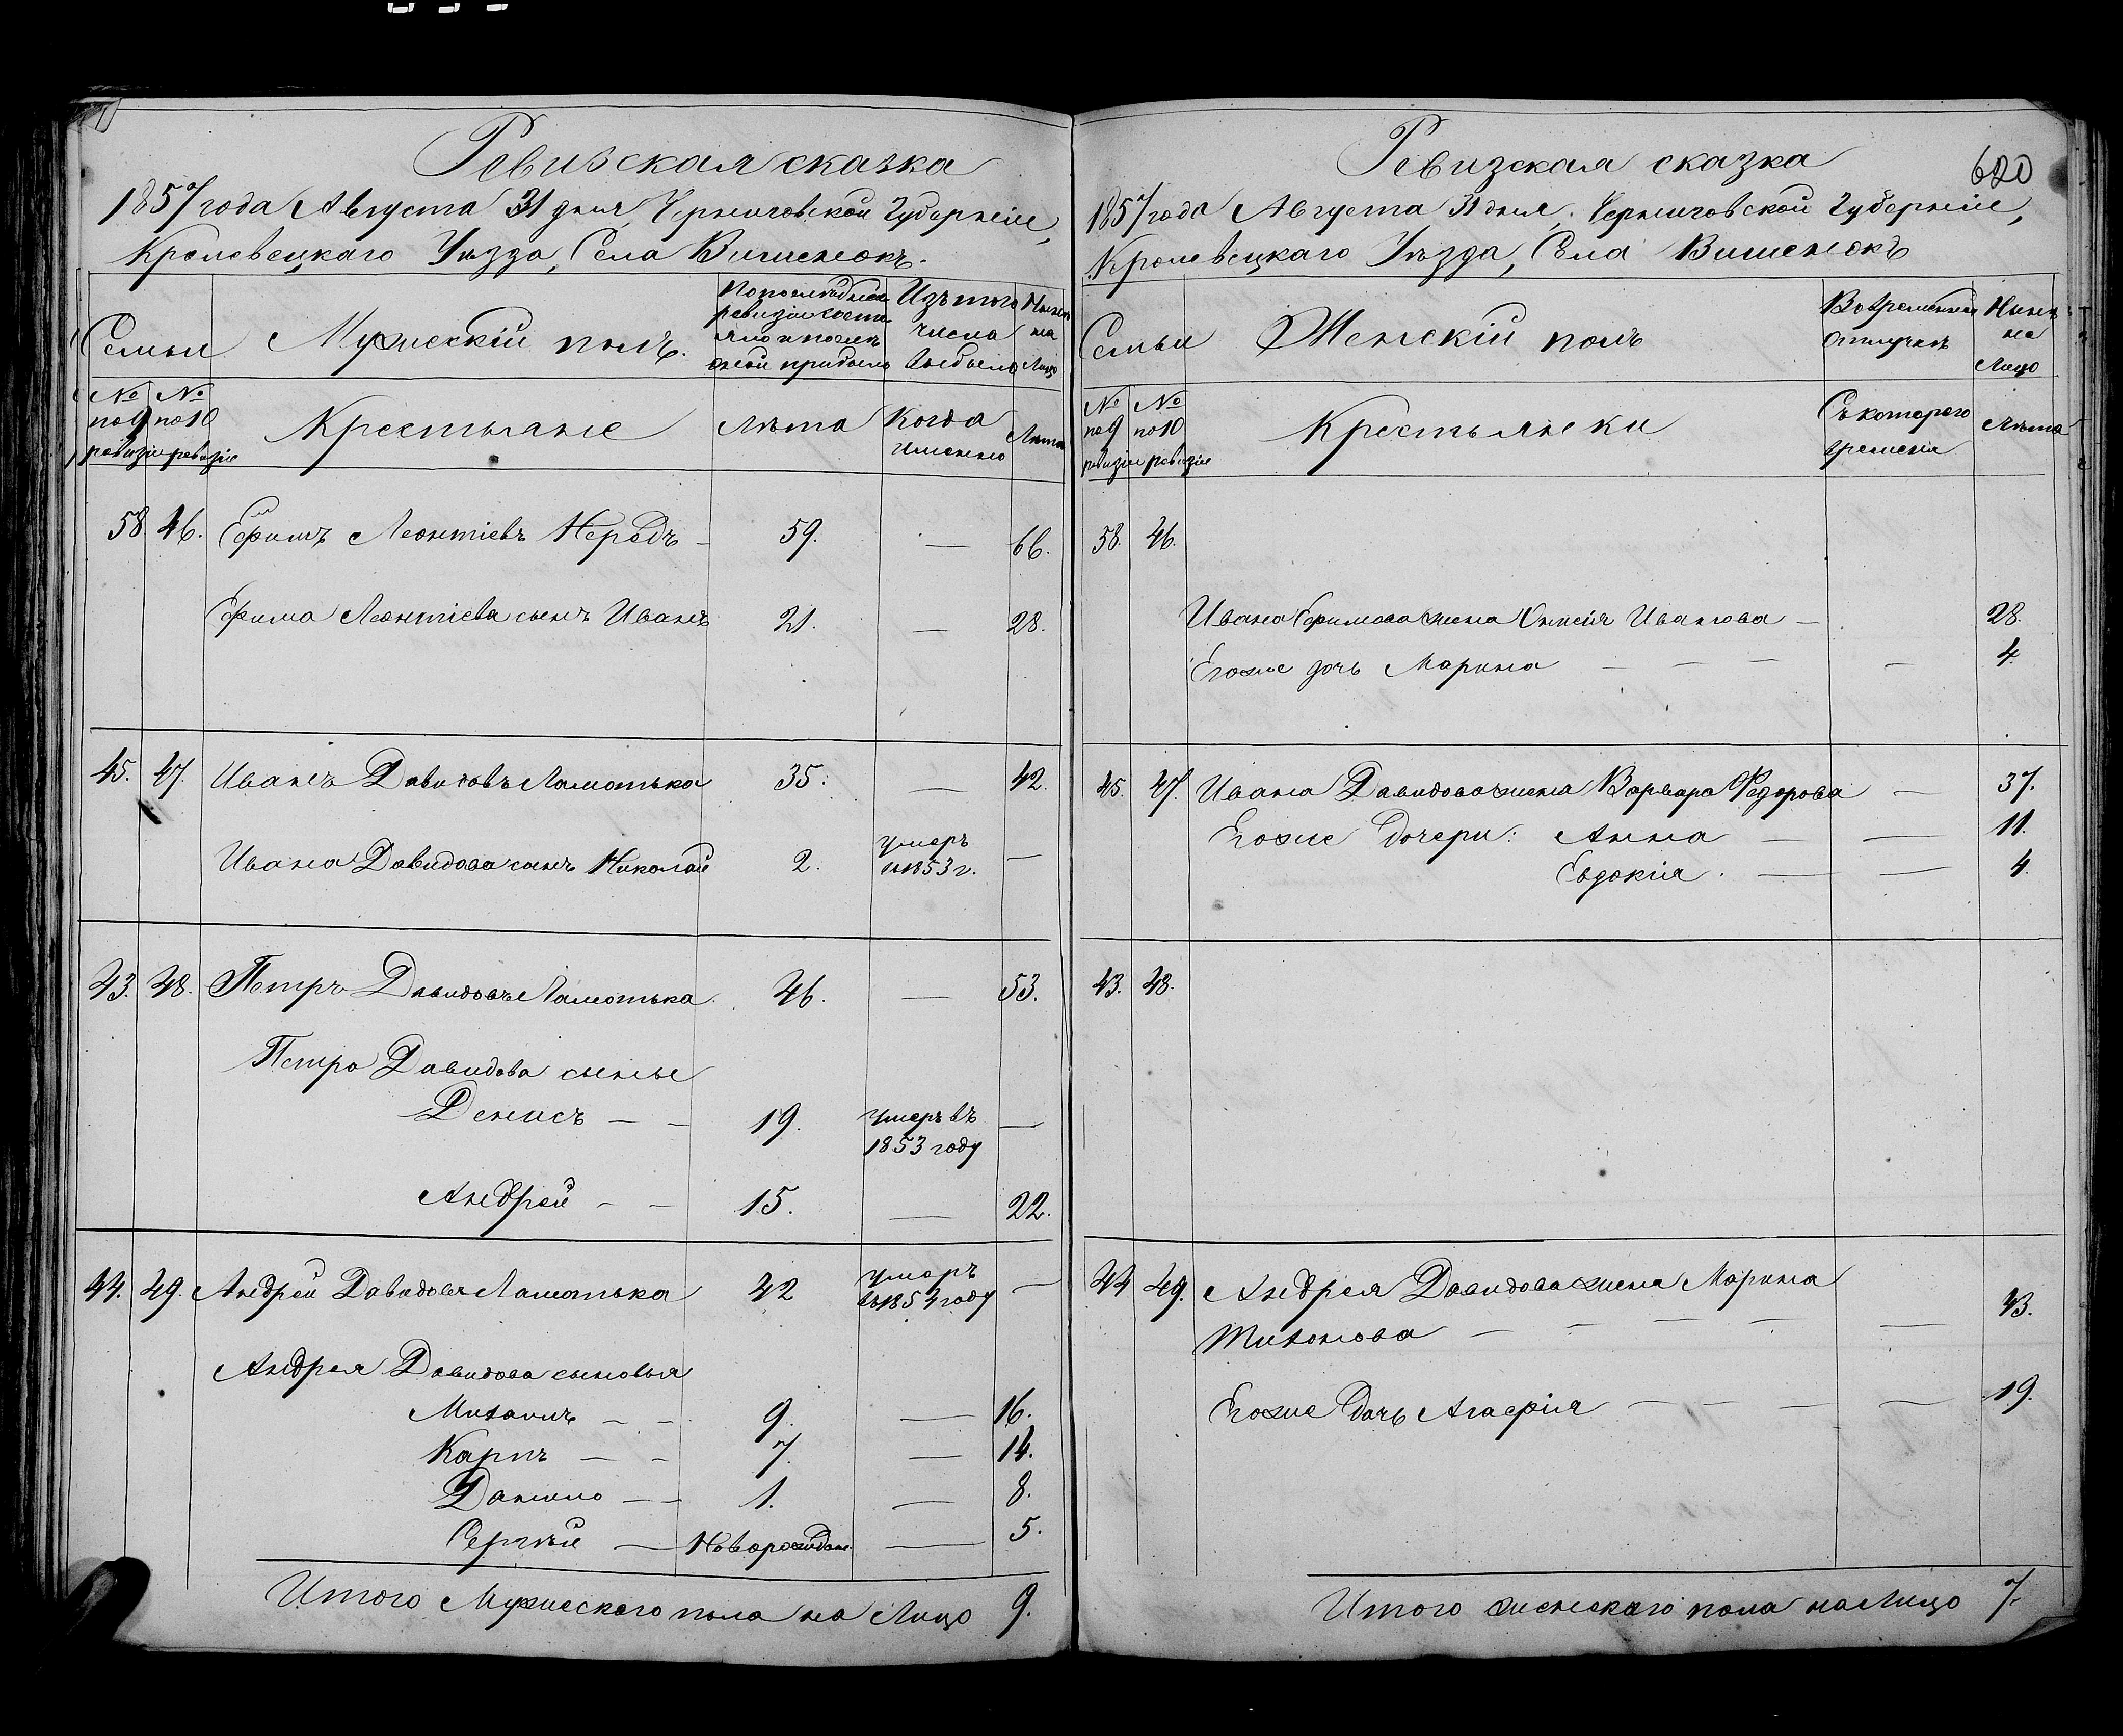 Ревизская сказка
1857 года Августа 31 дня, Черниговской Губерніи,
Кролевецкаго Уѣзда, Села Вишенокъ.
Семьи
Мужескій полъ.
По послѣдней
ревизіи состо
яло и послѣ
оной прибыло
Изъ того
числа
выбыло
Нынѣ
на
Лицо
№ №
по 9 по 10
ревизіи ревизіи
Крестьяне
Лѣта
Когда
именно
Лѣта
58. 46. Ефимъ Леонтіевъ Нередъ — 59. — 66.
Ефима Леонтіева сынъ Иванъ 21. — 28.
45. 47. Иванъ Давидовъ Ламотька 35. — 42.
Ивана Давидова сынъ Николай 2. умеръ
в 1853 г. —
43. 48. Петръ Давидовъ Ламотька. 46. — 53.
Петра Давидова сыны
Денисъ — — 19. умеръ въ
1853 году —
Андрей — — 15. — 22.
44. 49. Андрей Давидовъ Ламотька 42 умеръ
въ 1854 году —
Андрея Давидова сыновья
Михаилъ — — 9. — 16.
Карпъ — — 7. — 14.
Данило — — 1. — 8.
Сергѣй — Новорожден — 5.
Итого Мужескаго пола на Лицо 9.
620
Ревизская сказка
1857 года Августа 31 дня, Черниговской Губерніи,
Кролевецкаго Уѣзда, Села Вишенокъ
Семьи
Женскій полъ
Во временной
отлучкѣ
Нынѣ
на
Лицо
№ №
по 9 по 10
ревизіи ревизіи
Крестьянки
Съ котораго
времени
Лѣта
58. 46.
Ивана Ефимова жена Иванова — 28.
Егоже дочь Марина — — — — 4.
45. 47. Ивана Давидова жена Варвара Федорова — 37.
Егоже дочери: Анна — — 11.
Евдокія. — — 4.
43. 48.
44 49. Андрея Давидова жена Марина
Тихонова — — — — — 43.
Егоже дочь Агафія — — — — 19.
Итого женскаго пола на Лицо 7.